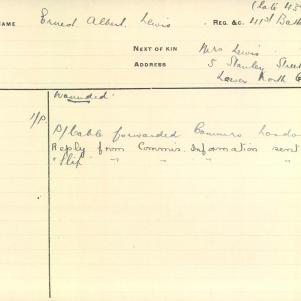 (late 43
NAME Ernest Albert Lewis REG. &C. 41st Batt
NEXT OF KIN Mrs Lewis
ADDRESS 5 Stanley Street
Lower North
Wounded.
P/Cable forwarded Commrs London
Reply from Commis. Information sent
"Slip" " " "